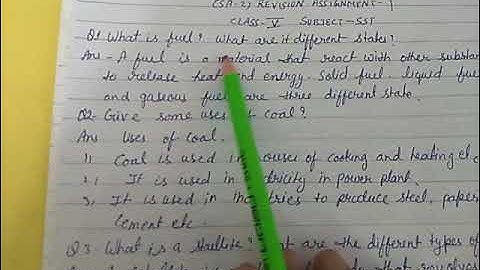 (SA-2) REVISION ASSIGNMENT-1
CLASS-V SUBJECT-SST
Q1 What is fuel? What are it different state?
Ans - A fuel is a material that react with other substan
to release heat and energy. Solid fuel, liquid fue
and gaseous fuel are three different state.
Q2- Give some uses of coal?
Ans Uses of coal.
1) Coal is used in houses of cooking and heating et.c
2, It is used in electricity in power plant.
3, It is used in industries to produce steel, paper
Cement etc.
Q3- What is a satellite? What are the different types of
that revolves